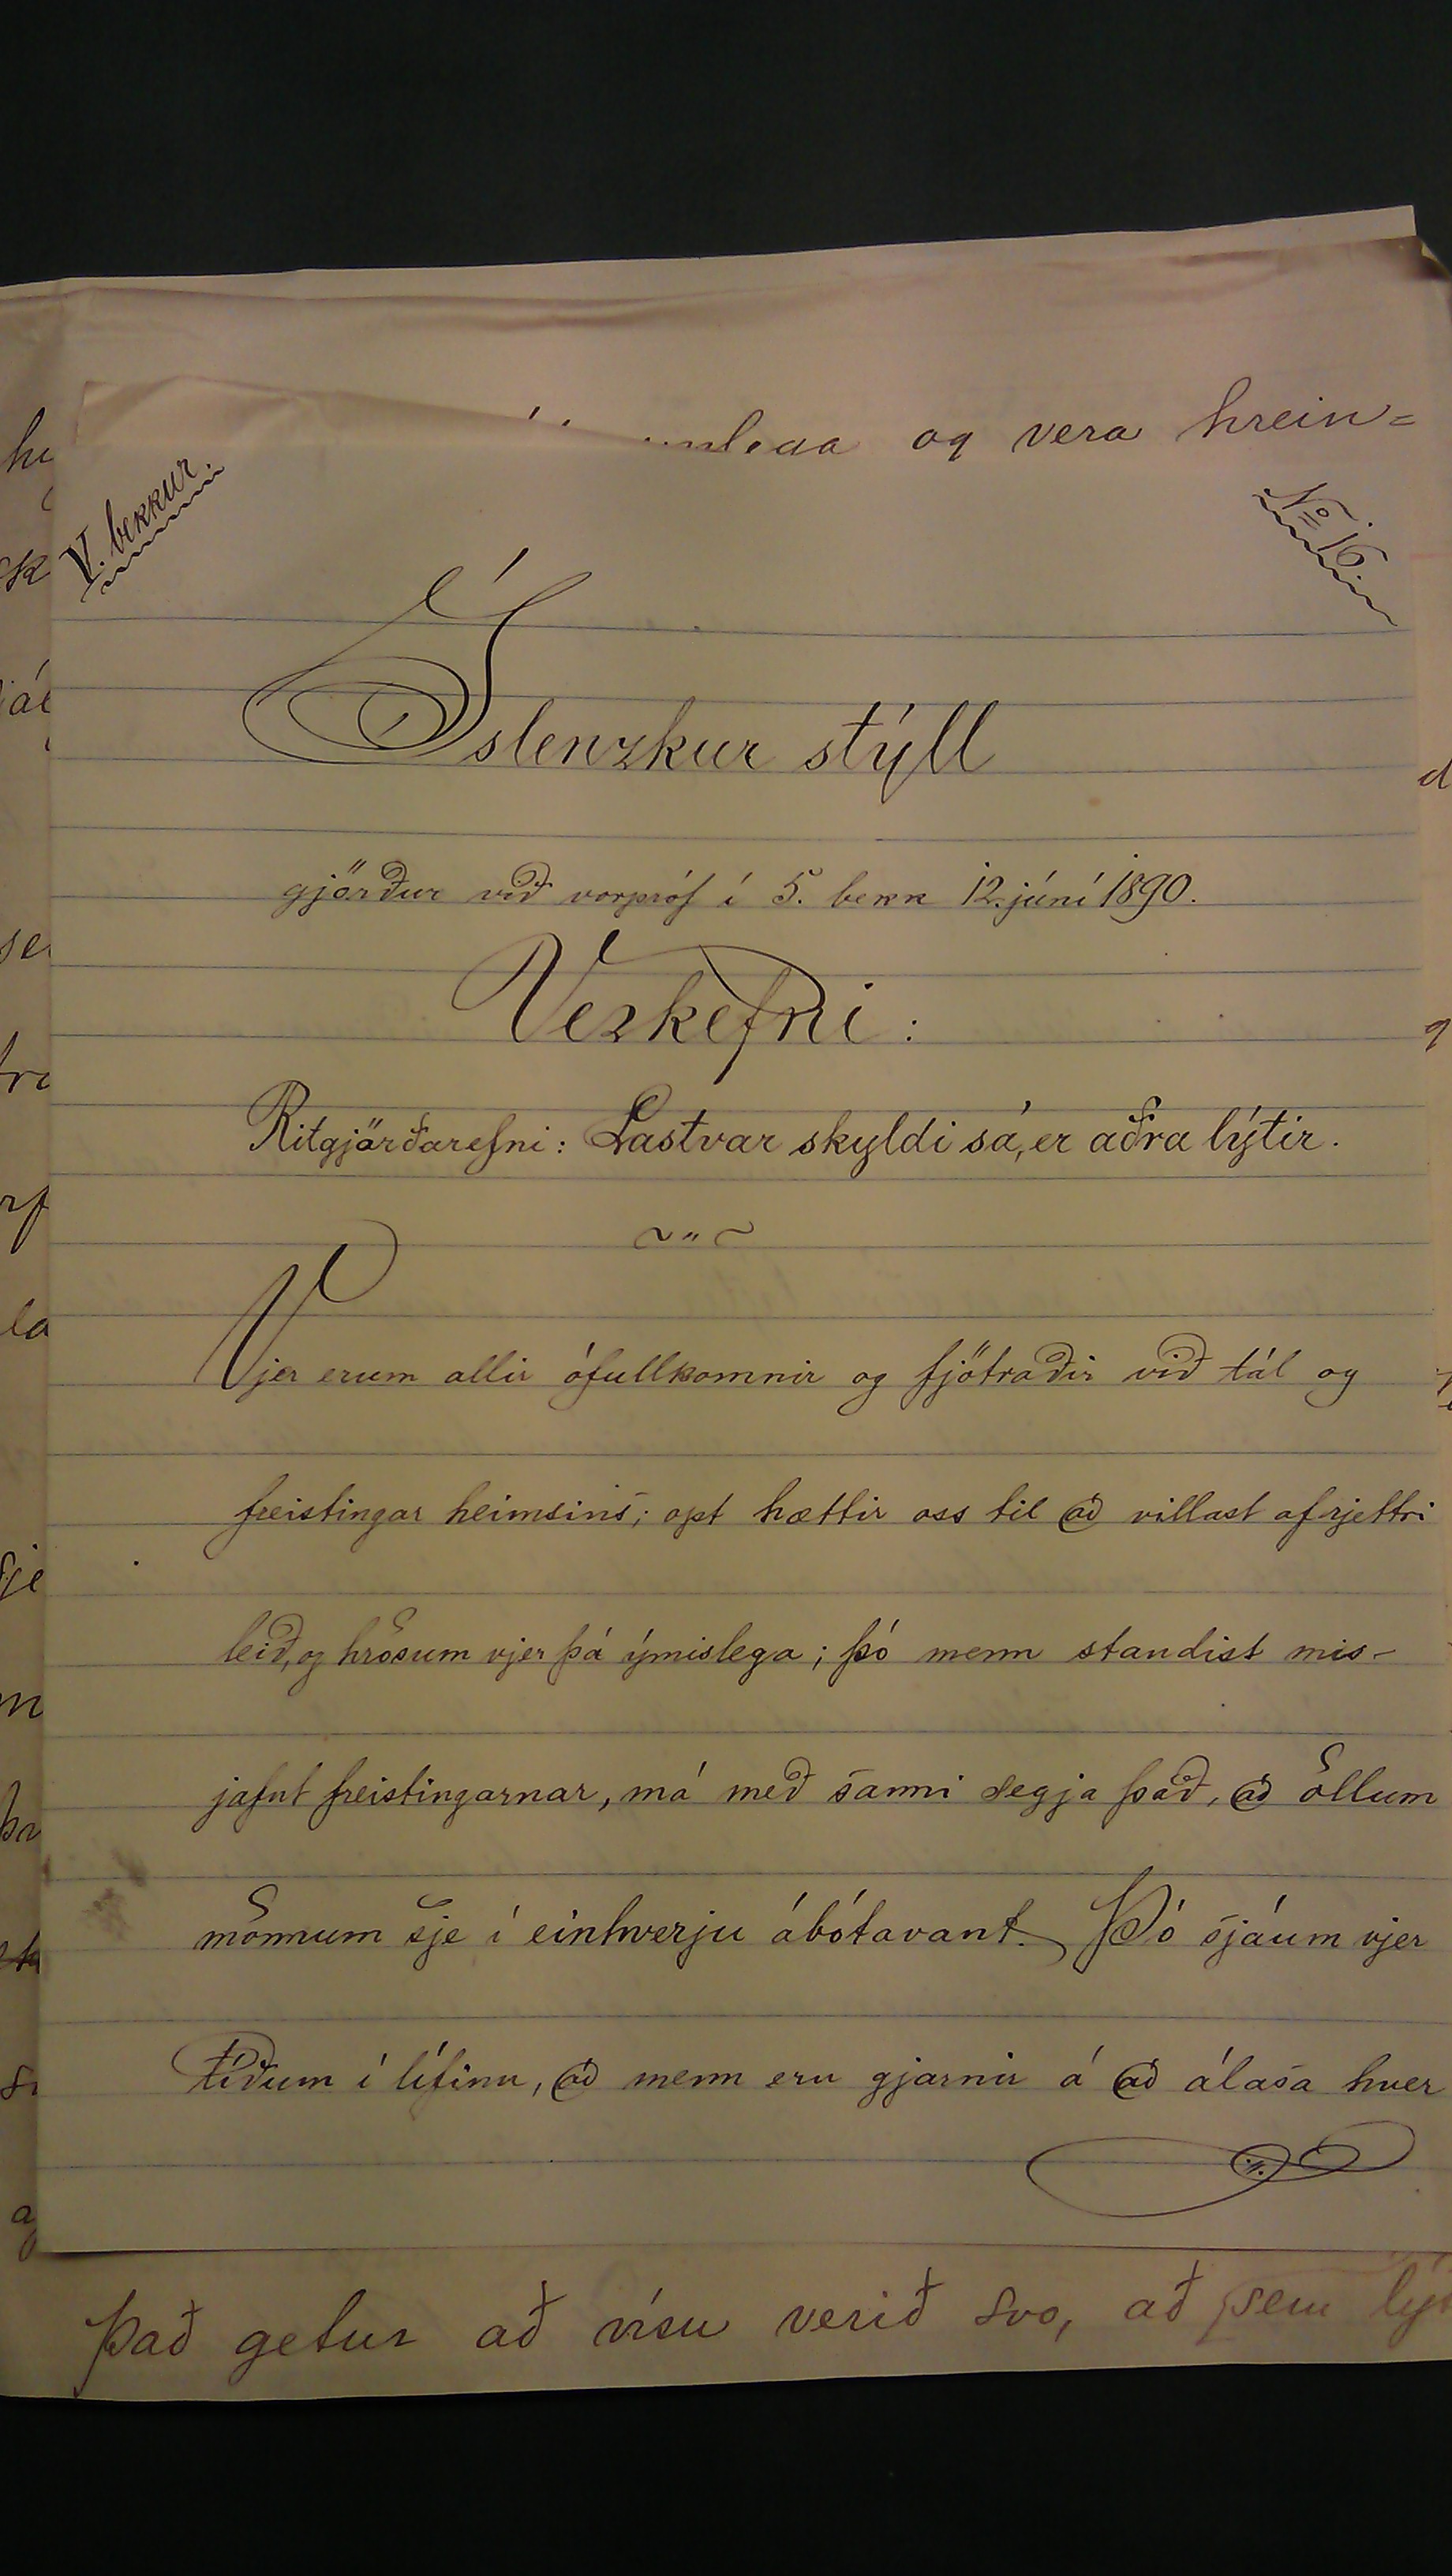 og vera hrein=
V. bekkur.
No 16.
Íslenzkur stýll
gjörður við vorpróf í 5. bekk 12. júní 1890.
Verkefni:
Ritgjörðarefni: Lastvar skyldi sá, er aðra lýtir.
Vjer erum allir ófullkomnir og fjötraðir við tál og
freistingar heimsins; opt hættir oss til að villast af rjettri
leið, og hrösum vjer þá ýmislega; þó menn standist mis-
jafnt freistingarnar, má með sanni segja það, að öllum
mönnum sje í einhverju ábótavant. Þó sjáum vjer
tíðum í lífinu, að menn eru gjarnir á að álasa hver
Það getur að vísu verið svo, að sem